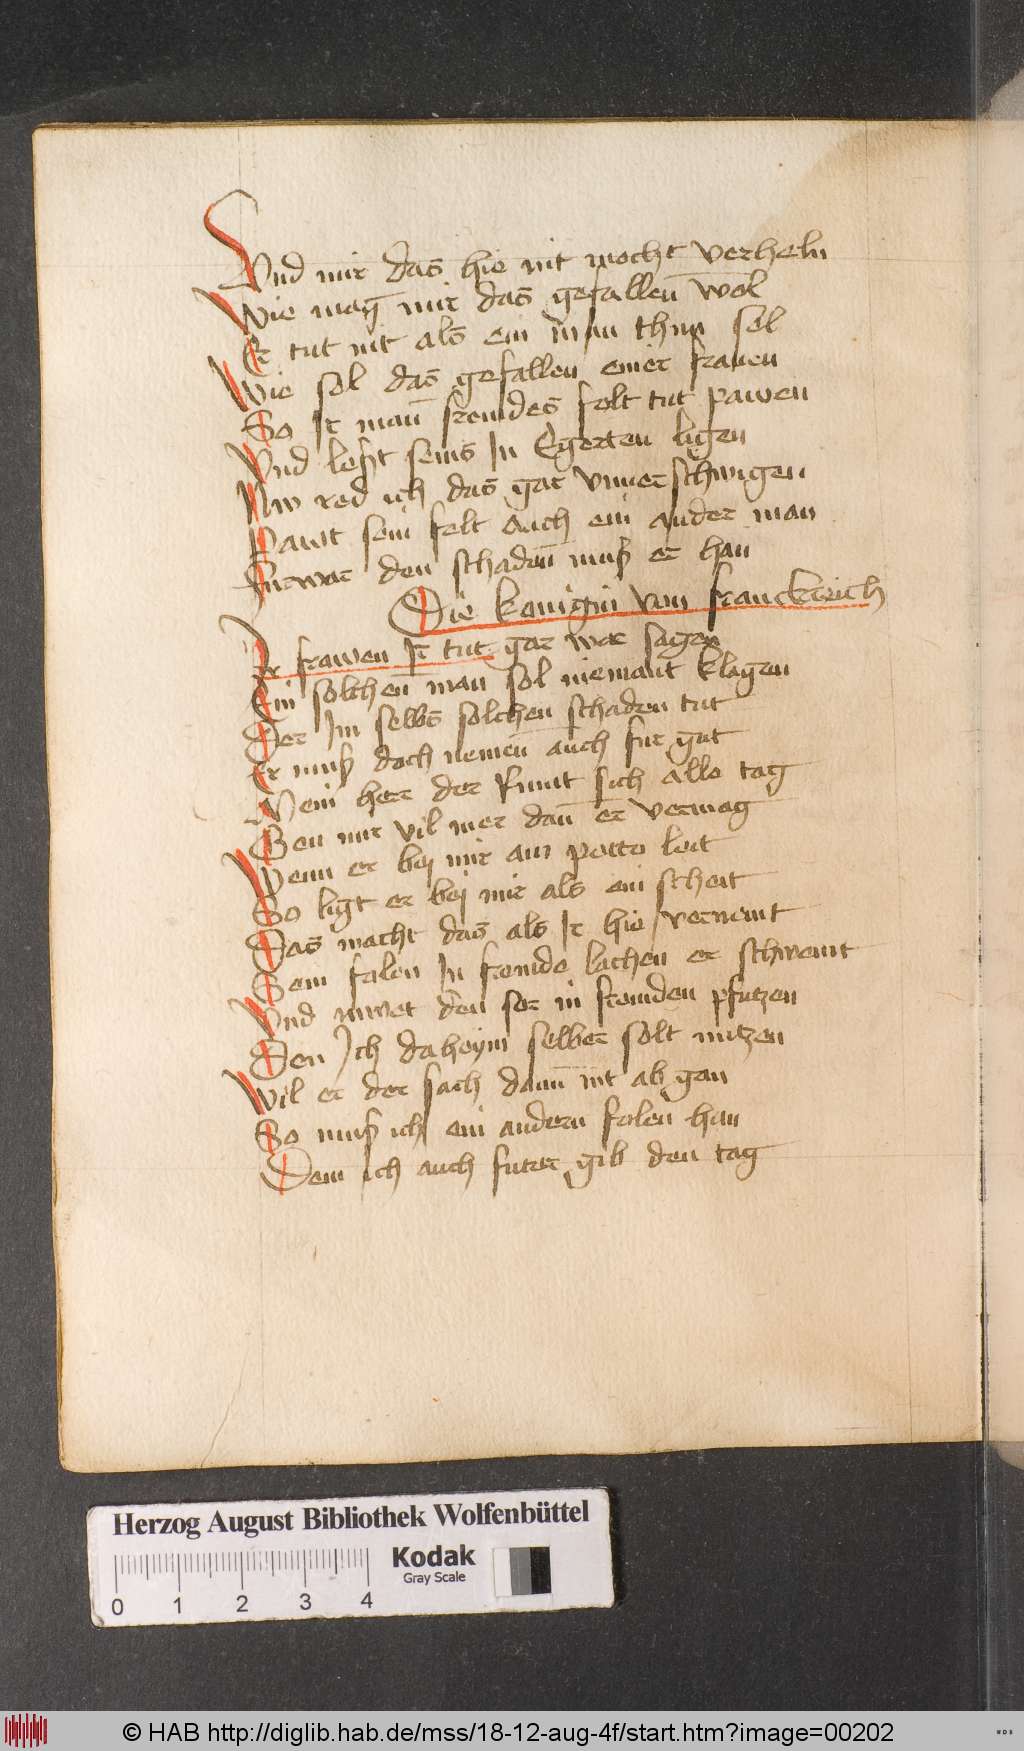 Vnd mir das hie nit mocht verheln
Wie mag mir das gefallen wol
Er tut nit als ein man thun sol
Wie sol das gefallen einer frauen
So Ir man fremdes felt tut pawen
Vnd lest seins In Egerten ligen
Nw red ich das gar vnuerschwigen
Pawt sein felt auch ein ander man
Furwar den schaden muß er han
Die konigin von franckrich
Ir frawen Ir tut gar war sagen
Ein solchen man sol niemant klagen
Der Im selbs solchen schaden tut
Er muß doch nemen auch fur gut
Mein herr der Rumt sich alle tag
Gen mir vil mer dan er vermag
Wenn er bej mir am pette leit
So ligt er bej mir als ein scheit
Das macht das als Ir hie vernemt
Sein falen In fremde lachen er schwemt
Vnd den in fremden pfutzen
Den Ich daheym selber solt nutzen
Wil er der sach dann nit ab gan
So muß ich ein andern falen han
Dem ich auch futer gib den tag
Herzog August Bibliothek Wolfenbüttel
Kodak
Gray Scale
0 1 2 3 4
© HAB http://diglib.hab.de/mss/18-12-aug-4f/start.htm?image=00202
WDB